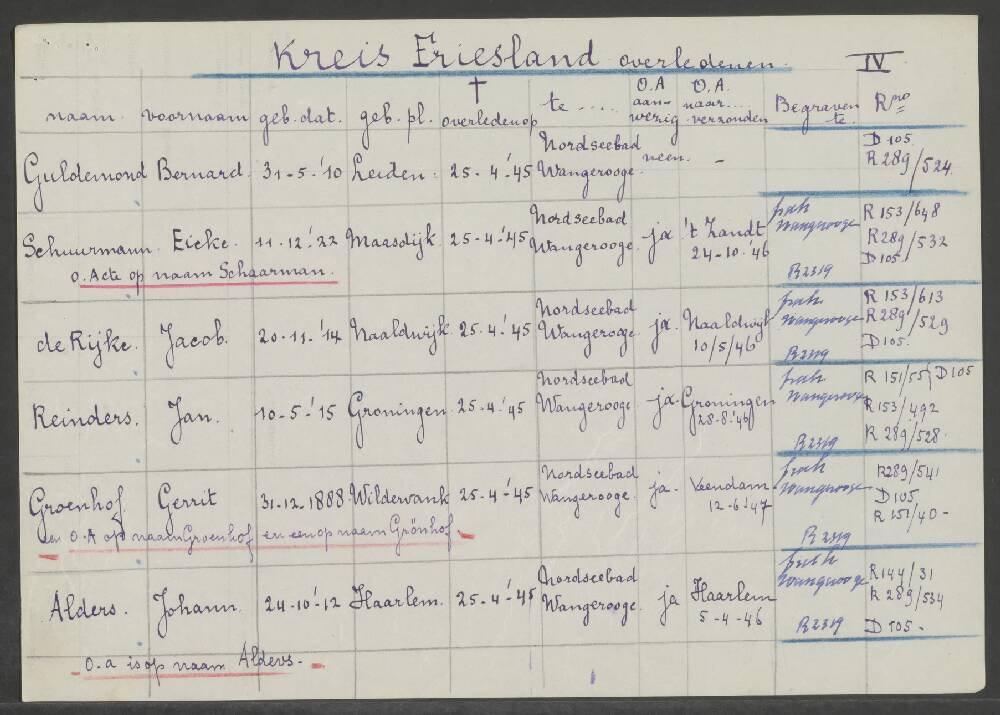 Kreis Friesland overledenen. IV
naam. voornaam geb. dat. geb. pl. † overleden op te .... O.A aan- wezig O.A. naar... verzonden Begraven te. Rnro
Guldemond Bernard. 31-5-'10 Leiden. 25-4-'45 Nordseebad Wangerooge. neen. - D 105. R 289/524
Schuurmann. Eieke. 11-12-'22 Maasdijk. 25-4-'45 Nordseebad Wangerooge. ja 't Zandt 24-10-'46 Wangerooge R2319 R 153/648 R 289/532 D 105.
O. Acte op naam Schaarman.
de Rijke. Jacob. 20-11-'14 Naaldwijk. 25-4-'45 Nordseebad Wangerooge ja. Naaldwijk 10/5/46 Wangerooge R2319 R 153/613 R 289/529 D 105.
Reinders. Jan. 10-5-'15 Groningen. 25-4-'45 Nordseebad Wangerooge ja. Groningen 28-8-'46 Wangerooge R2319 R 151/55 D 105 R 153/492 R 289/528.
Groenhof. Gerrit 31-12-1888 Wildervank 25-4-'45 Nordseebad Wangerooge. ja. Veendam. 12-6-'47 Wangerooge R 2319 R289/541 D 105 R 151/40-
en O.A op naam Groenhof en een op naam Grönhof
Alders. Johann. 24-10-'12 Haarlem. 25-4-'45 Nordseebad Wangerooge. ja Haarlem 5-4-46 Wangerooge R2319 R144/31 R 289/534 D 105-
O.a is op naam Älders.-